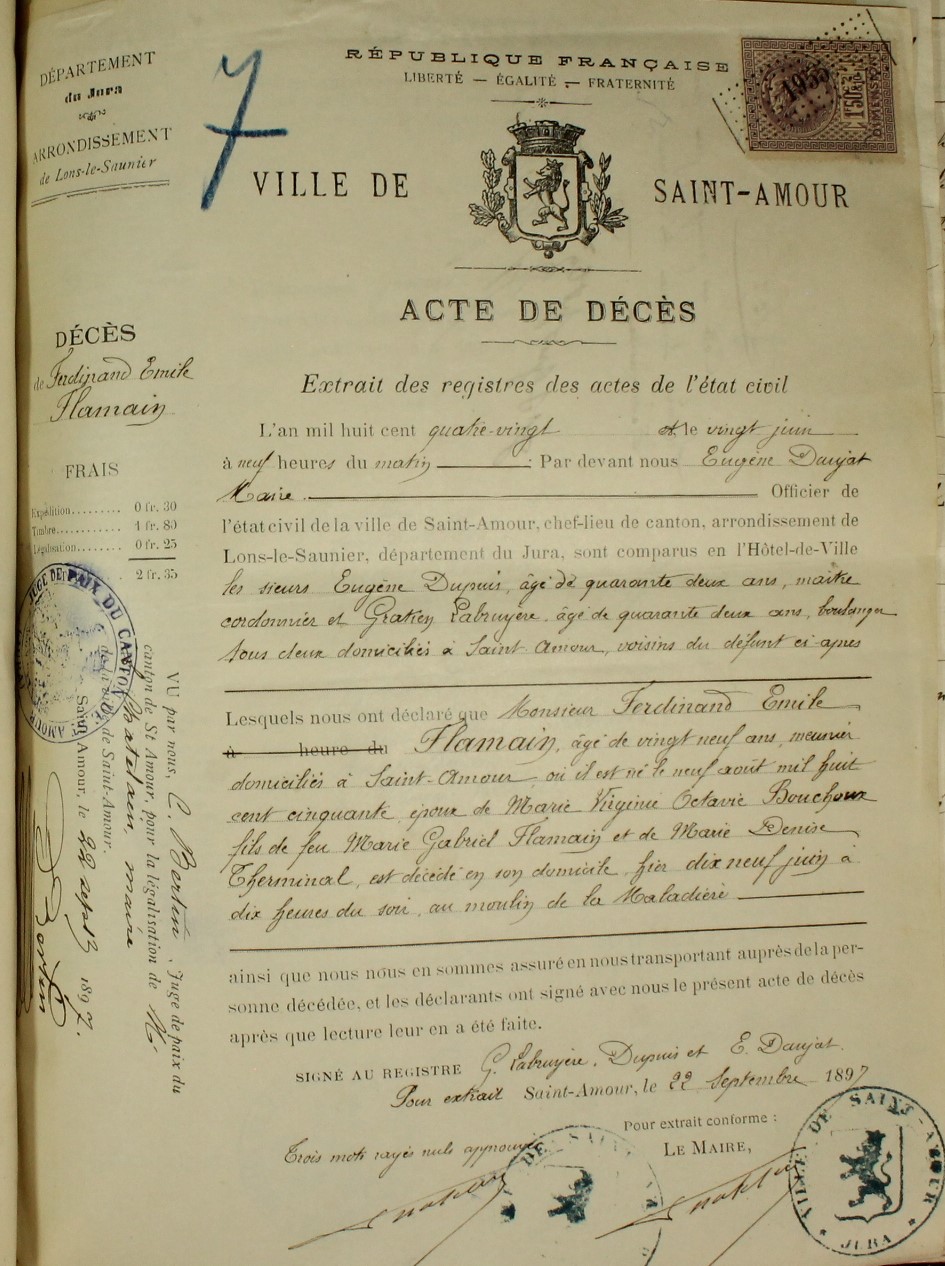 DÉPARTEMENT
du Jura
ARRONDISSEMENT
de Lons-le-Saunier
7
RÉPUBLIQUE FRANÇAISE
LIBERTÉ — ÉGALITÉ — FRATERNITÉ
1955
1F50
DIMENSION
VILLE DE SAINT-AMOUR
ACTE DE DÉCÈS
DÉCÈS
de Ferdinand Emile
Flamain
FRAIS
Expédition......... 0 fr. 30
Timbre............ 1 fr. 80
Légalisation....... 0 fr. 25
2 fr. 35
Extrait des registres des actes de l'état civil
L'an mil huit cent quatre-vingt et le vingt juin
à neuf heures du matin : Par devant nous Eugène Daujat
Maire. Officier de
l'état civil de la ville de Saint-Amour, chef-lieu de canton, arrondissement de
Lons-le-Saunier, département du Jura, sont comparus en l'Hôtel-de-Ville
les sieurs Eugène Dupuis, âgé de quarante deux ans, maître
cordonnier et Gratien Labruyère, âgé de quarante deux ans, boulanger
tous deux domiciliés à Saint-Amour, voisins du défunt ci-après
Lesquels nous ont déclaré que Monsieur Ferdinand Emile
à heure du Flamain, âgé de vingt neuf ans, meunier
domiciliés à Saint-Amour où il est né le neuf août mil huit
cent cinquante, époux de Marie Virginie Octavie Bouchoux
fils de feu Marie Gabriel Flamain et de Marie Denise
Therminal, est décédé en son domicile, hier dix neuf juin à
dix heures du soir, au moulin de la Maladière
ainsi que nous nous en sommes assuré en nous transportant auprès de la per-
sonne décédée, et les déclarants ont signé avec nous le présent acte de décès
après que lecture leur en a été faite.
SIGNÉ AU REGISTRE G. Labruyère, Dupuis et E. Daujat.
Pour extrait Saint-Amour, le 22 Septembre 1897
Pour extrait conforme :
LE MAIRE,
Trois mots rayés nuls approuvés
VILLE DE SAINT-AMOUR
JURA
DE SAI
JUGE DE PAIX DU CANTON
VU par nous, C. Bertin, Juge de paix du
canton de St Amour, pour la légalisation de M
Chatelain, maire
de la ville de Saint-Amour.
Saint Amour, le 22 septb 1897.